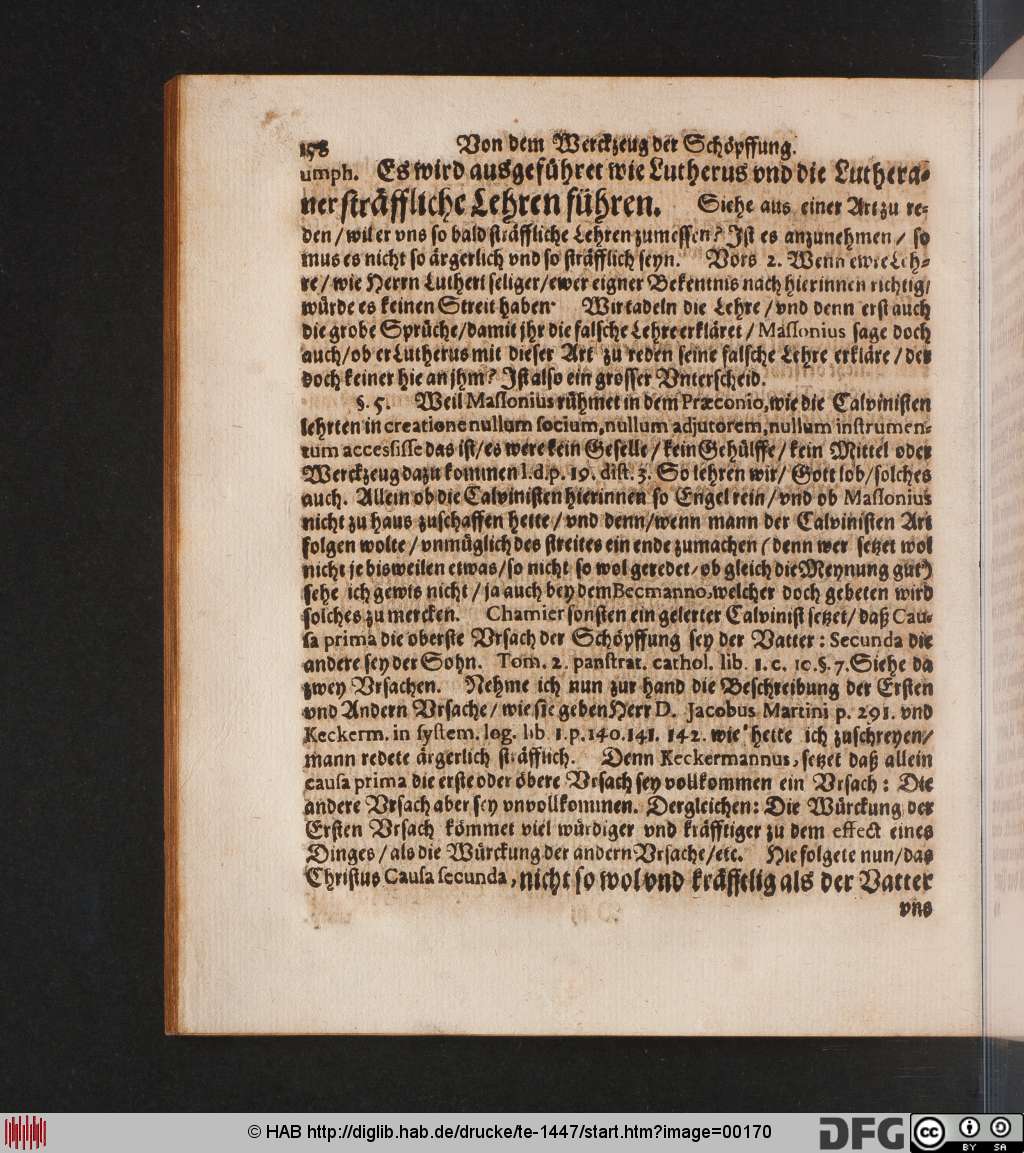 158 Von dem Werckzeug der Schöpffung.
umph. Es wird ausgeführet wie Lutherus vnd die Luthera-
ner sträffliche Lehren führen. Siehe aus einer Art zu re-
den / wil er vns so bald sträffliche Lehren zumessen? Jst es anzunehmen / so
mus es nicht so ärgerlich vnd so sträfflich seyn. Vors 2. Wenn ewre Leh-
re / wie Herrn Lutheri seliger / ewer eigner Bekentnis nach hierinnen richtig /
würde es keinen Streit haben. Wir tadeln die Lehre / vnd denn erst auch
die grobe Sprüche / damit jhr die falsche Lehre erkläret / Massonius sage doch
auch / ob er Lutherus mit dieser Art zu reden seine falsche Lehre erkläre / der
doch keiner hie an jhm? Jst also ein grosser Vnterscheid.
§. 5. Weil Massonius rühmet in dem Præconio, wie die Calvinisten
lehrten in creatione nullum socium, nullum adjutorem, nullum instrumen-
tum accessisse das ist / es were kein Geselle / kein Gehülffe / kein Mittel oder
Werckzeug dazu kommen l. d. p. 19. dist. 3. So lehren wir / Gott lob / solches
auch. Allein ob die Calvinisten hierinnen so Engel rein / vnd ob Massonius
nicht zu haus zuschaffen hette / vnd denn / wenn mann der Calvinisten Art
folgen wolte / vnmüglich des streites ein ende zumachen (denn wer setzet wol
nicht je bisweilen etwas / so nicht so wol geredet / ob gleich die Meynung gut)
sehe ich gewis nicht / ja auch bey dem Becmanno, welcher doch gebeten wird
solches zu mercken. Chamier sonsten ein gelerter Calvinist setzet / daß Cau-
sa prima die oberste Vrsach der Schöpffung sey der Vatter: Secunda die
andere sey der Sohn. Tom. 2. panstrat. cathol. lib. 1. c. 10. §. 7. Siehe da
zwey Vrsachen. Nehme ich nun zur hand die Beschreibung der Ersten
vnd Andern Vrsache / wie sie geben Herr D. Jacobus Martini p. 291. vnd
Keckerm. in system. log. lib. 1. p. 140. 141. 142. wie hette ich zuschreyen /
mann redete ärgerlich sträfflich. Denn Keckermannus, setzet daß allein
causa prima die erste oder öbere Vrsach sey vollkommen ein Vrsach: Die
andere Vrsach aber sey vnvollkommen. Dergleichen: Die Würckung der
Ersten Vrsach kömmet viel würdiger vnd kräfftiger zu dem effect eines
Dinges / als die Würckung der andern Vrsache / etc. Hie folgete nun / das
Christus Causa secunda, nicht so wol vnd kräfftig als der Vatter
vns
© HAB http://diglib.hab.de/drucke/te-1447/start.htm?image=00170
DFG
cc BY SA